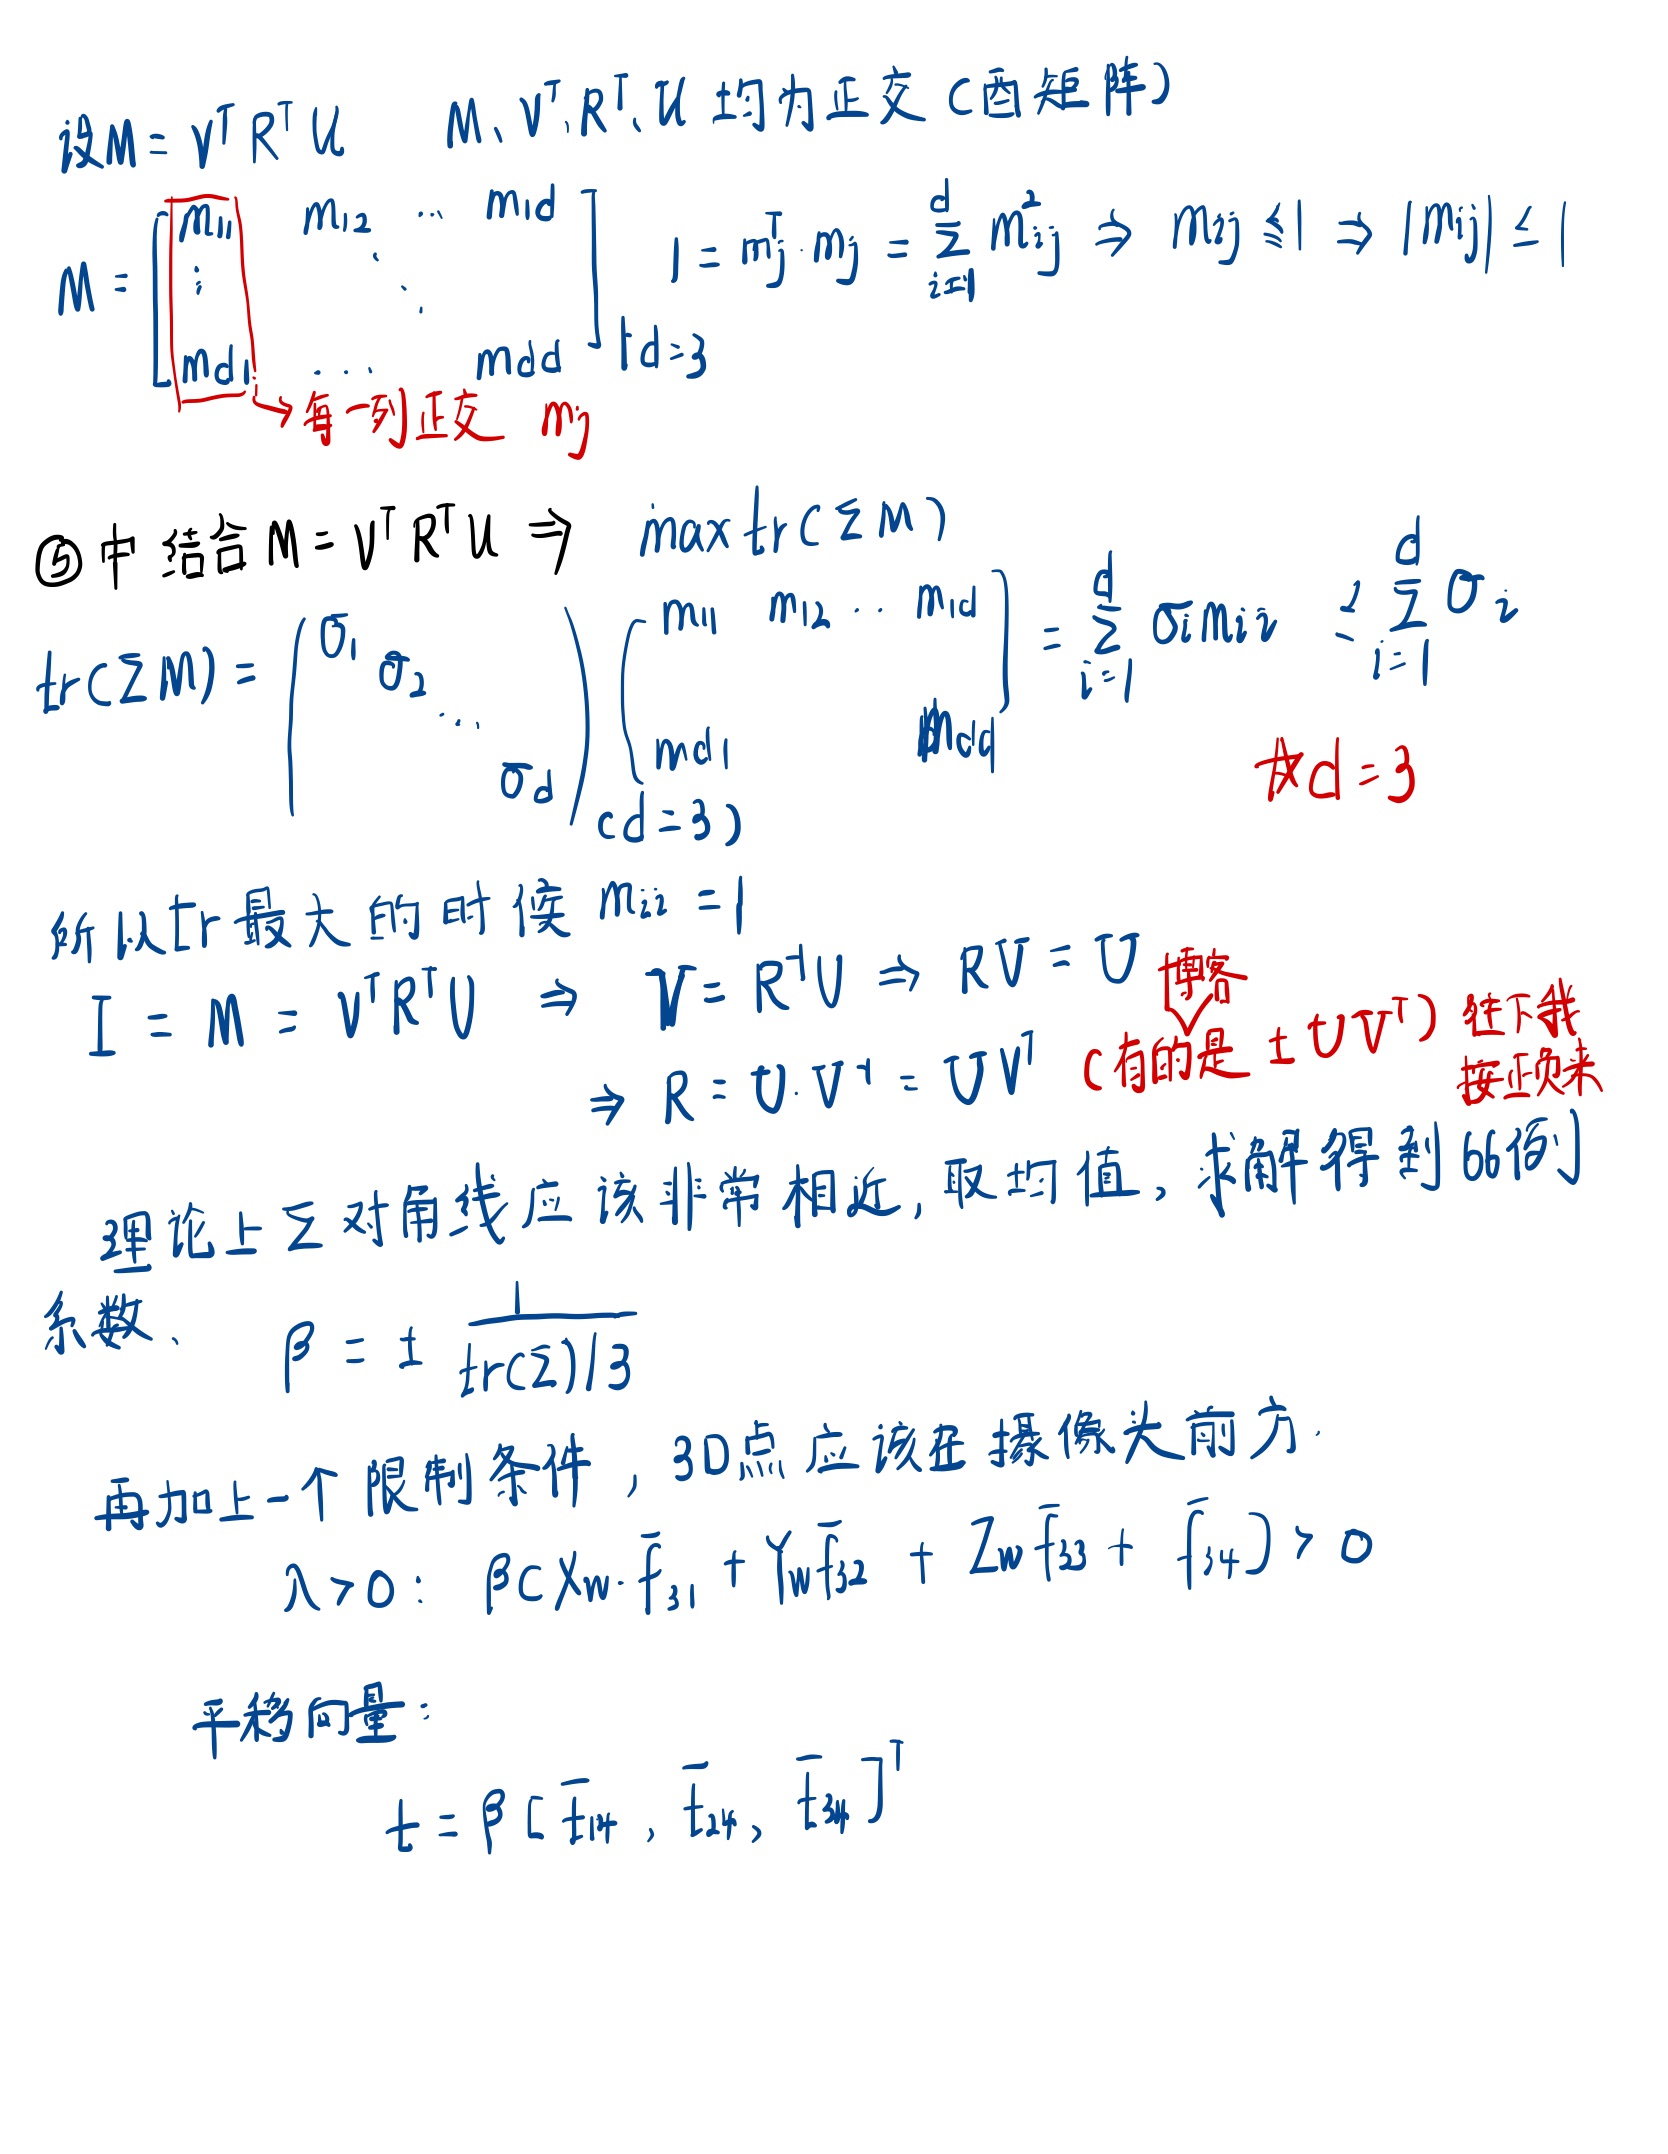 设M = VᵀRᵀU M、Vᵀ、Rᵀ、U 均为正交(酉矩阵)
M = [m₁₁ m₁₂ … m₁d ⋮ ⋱ md₁ … mdd] 1 = mⱼᵀ·mⱼ = Σᵢ₌₁ᵈ m²ᵢⱼ ⇒ mᵢⱼ ≤ 1 ⇒ |mᵢⱼ| ≤ 1
d=3
→ 每一列正交 mⱼ
⑤中结合 M = VᵀRᵀU ⇒ max tr(ΣM)
tr(ΣM) = (σ₁ σ₂ ⋱ σd) [m₁₁ m₁₂ … m₁d md₁ mdd] = Σᵢ₌₁ᵈ σᵢmᵢᵢ ≤ Σᵢ₌₁ᵈ σᵢ
(d=3)
☆d=3
所以tr最大的时候 mᵢᵢ = 1
I = M = VᵀRᵀU ⇒ V = R⁻¹U ⇒ RV = U
博客
⇒ R = U·V⁻¹ = UVᵀ (有的是 ±UVᵀ) 往下我
按正负来
理论上Σ对角线应该非常相近,取均值,求解得到比例
系数、 β = ± 1/(tr(Σ)/3)
再加上一个限制条件,3D点应该在摄像头前方.
λ>0: β(Xw·f̄₃₁ + Ywf̄₃₂ + Zwf̄₃₃ + f̄₃₄) > 0
平移向量:
t = β[t̄₁₄, t̄₂₄, t̄₃₄]ᵀ